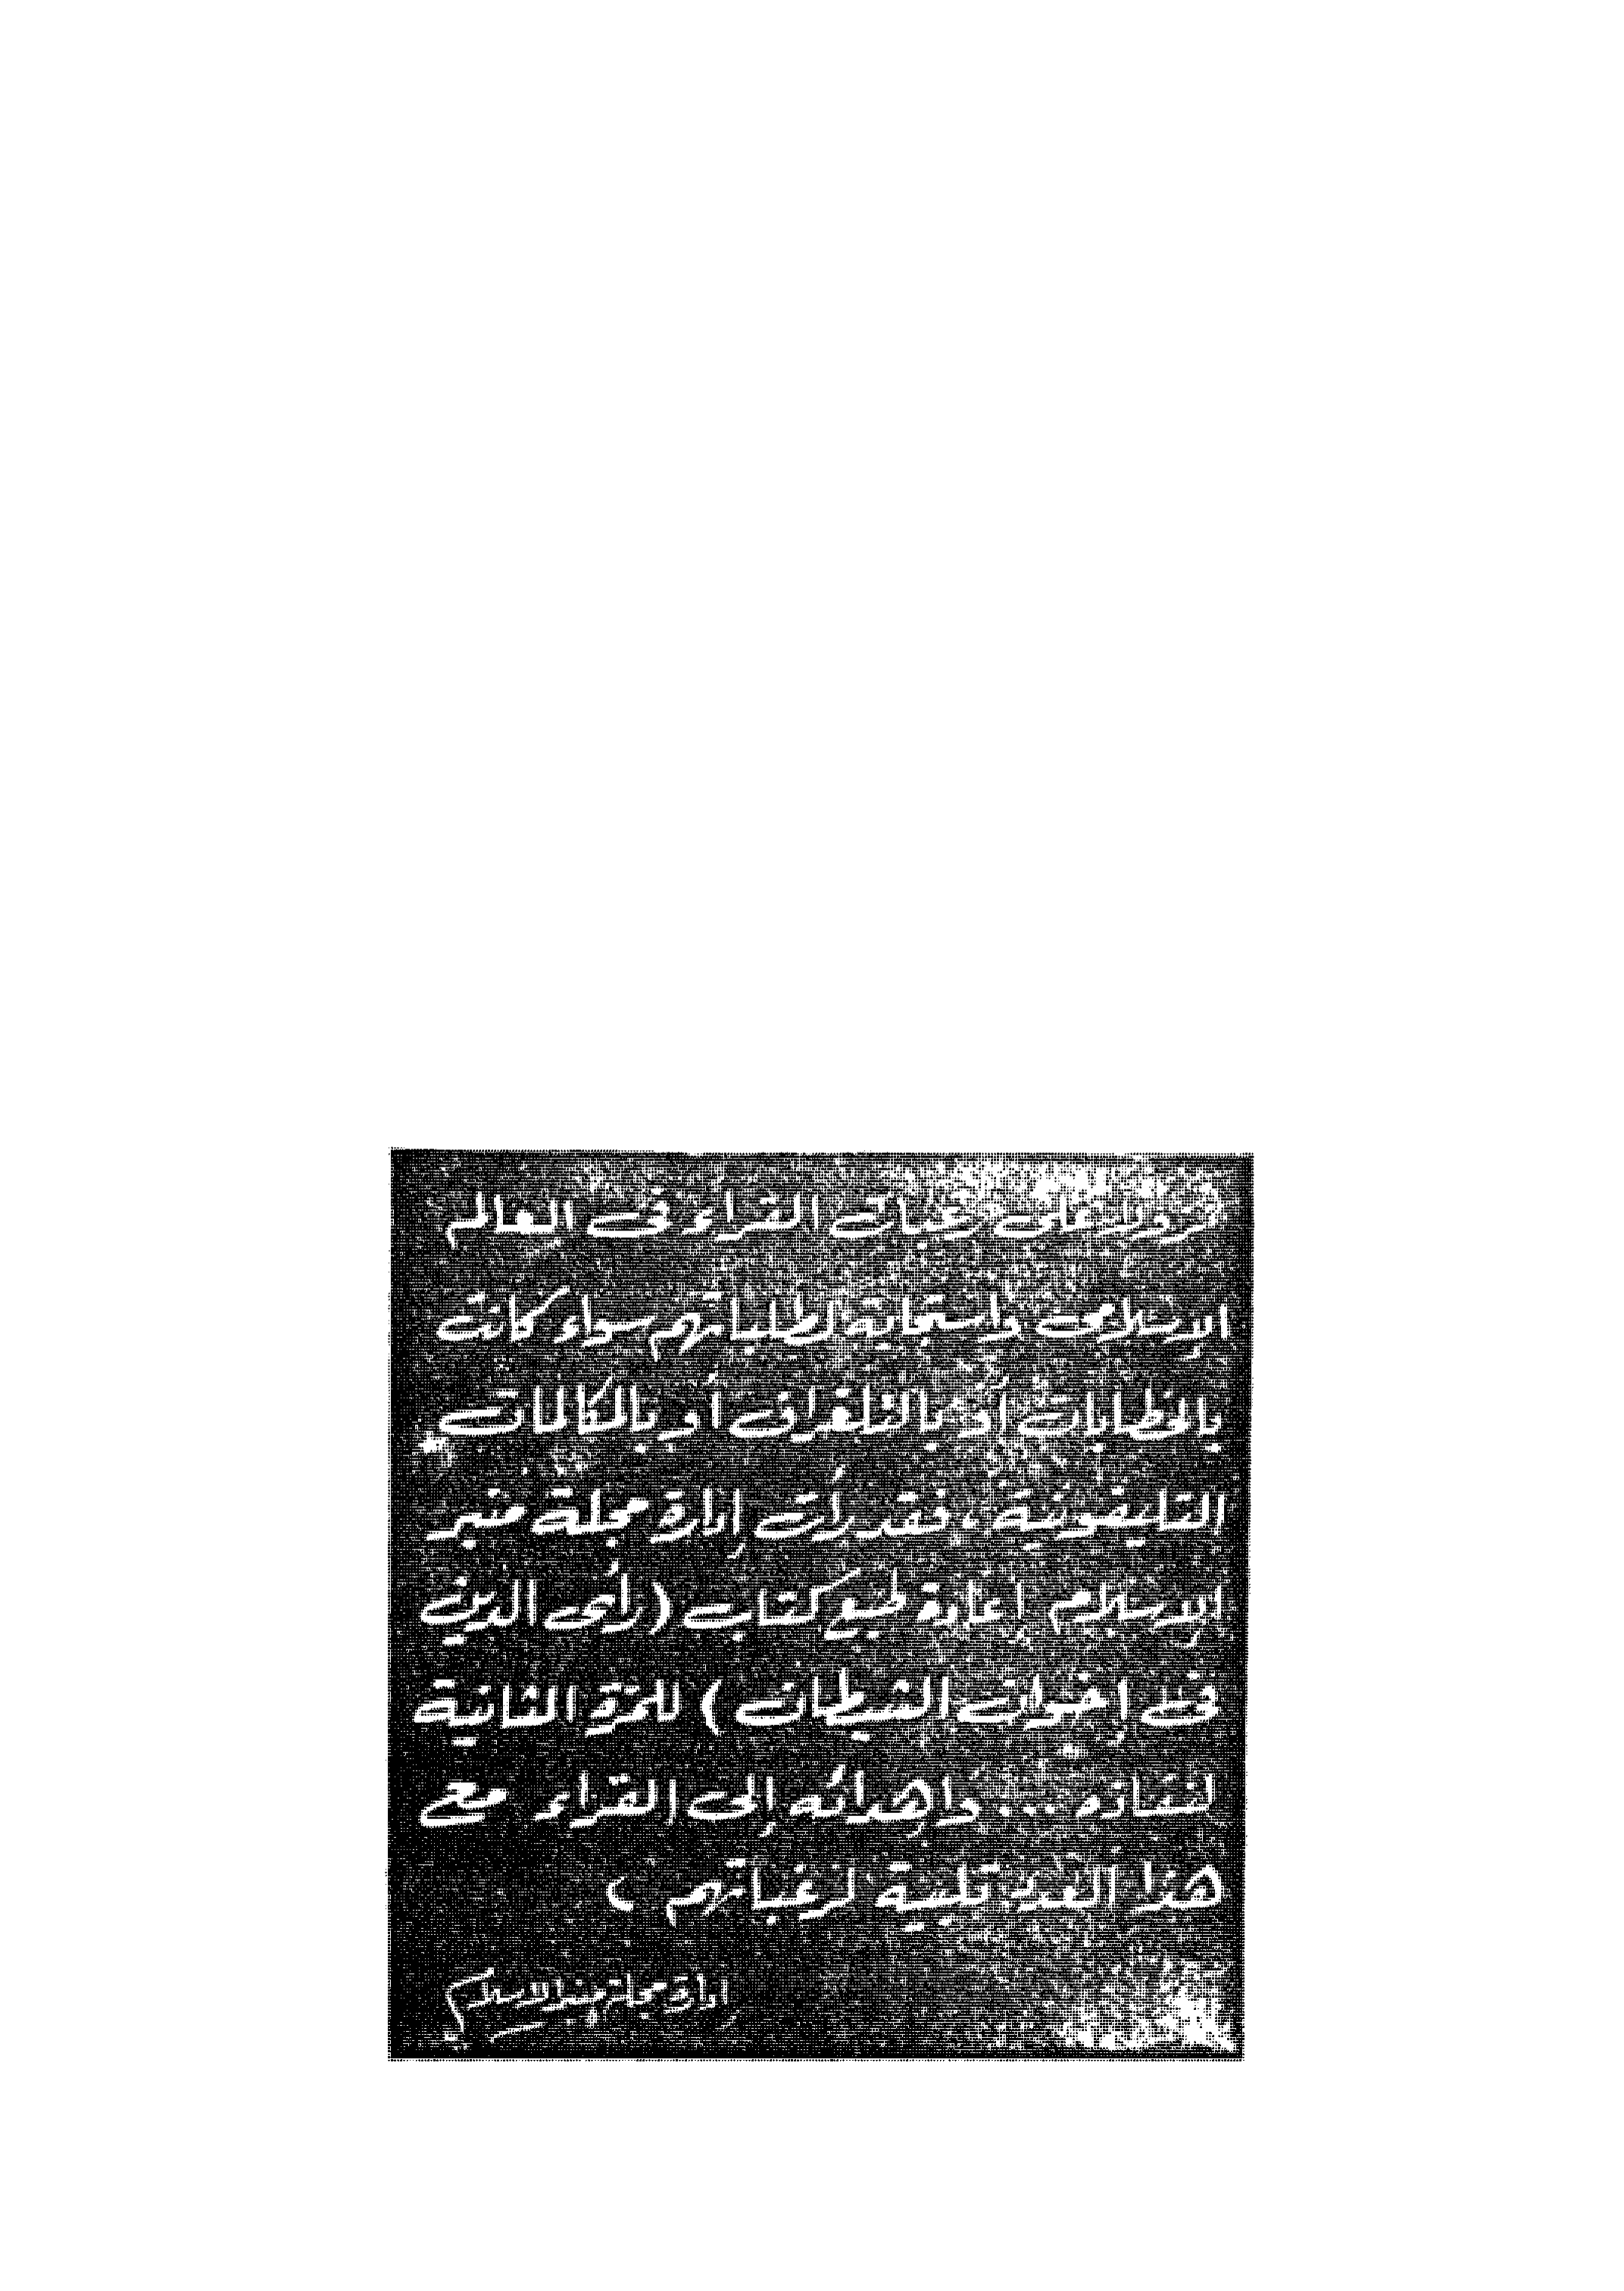 ( ورداً على رغبات القراء فى العالم
الإسلامى واستجابة لطلباتهم سواء كانت
بالخطابات أو بالتلغراف أو بالمكالمات
التليفونية، فقد رأت إدارة مجلة منبر
الإسلام إعادة طبع كتاب (رأى الدين
فى إخوان الشيطان) للمرة الثانية
لنفاذه ... وإهدائه إلى القراء مع
هذا العدد تلبية لرغباتهم )
إدارة مجلة منبر الإسلام